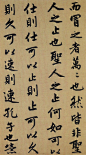 而冒之者萬一也然皆非聖
人之止也聖人之止何如可以
仕則仕可以止則止可以久
則久可以速則速孔子也然